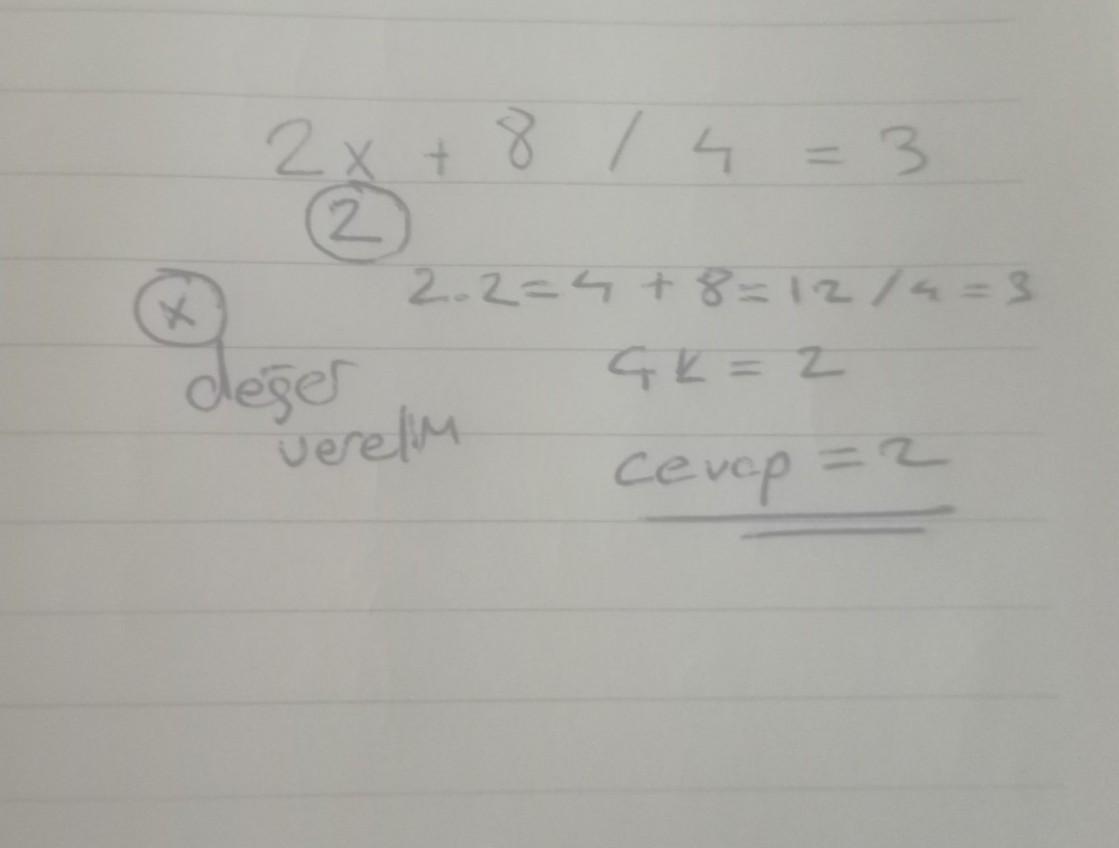 2x + 8 / 4 = 3
2
x 2.2=4 + 8=12/4=3
değer
verelim
Çk = 2
cevap = 2